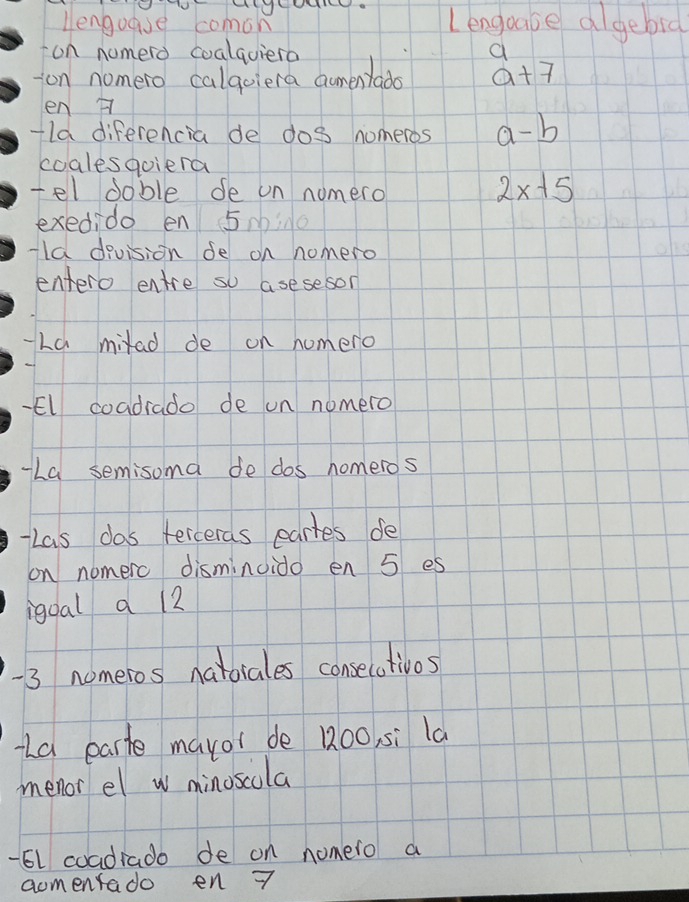 Lengoaje comon Lengoaje algebra
-on nomero coalqoiero a
-on nomero calqoiera aomentado a+7
en 7
-la diferencia de dos nomeros a-b
coalesqoiera
-el doble de un nomero 2x+5
exedido en 5
-la division de on nomero
entero entre so asesesor
-La mitad de on nomero
-
-El coadrado de un nomero
-La semisoma de dos nomeros
-Las dos terceras partes de
on nomero disminoido en 5 es
igoal a 12
-3 nomeros natorales consecotivos
-La parte mayor de 1200, si la
menor el w minoscola
-El coadrado de on nomero a
aomentado en 7